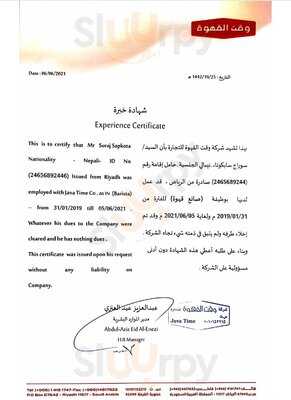 وقت القهوة
Date : 06/06/2021
التاريخ : 1442/10/25 هـ
شهادة خبرة
Experience Certificate
This is to certify that Mr Suraj Sapkota
Nationality - Nepali- ID No
(24656892446) Issued from Riyadh was
employed with Java Time Co . as IN (Barista)
– from 31/01/2019 till 05/06/2021 .
Whatever his dues to the Company were
cleared and he has nothing dues .
This certificate was issued upon his request
without any liability on
Company.
بهذا تشهد شركة وقت القهوة للتجارة بأن السيد/
سوراج سابكوتا، نيبالي الجنسية، حامل إقامة رقم
(2465689244) صادرة من الرياض ، قد عمل
لدينا بوظيفة (صانع قهوة) للفترة من
2019/01/31 م ولغاية 2021/06/05 م وقد تم
إخلاء طرفه ولم يتبق في ذمته شيء تجاه الشركة .
وبناء على طلبه أعطي هذه الشهادة دون أدنى
مسؤولية على الشركة .
عبدالعزيز عيد العنزي
مدير الموارد البشرية
Abdul-Aziz Eid Al-Enezi
HR Manager
شركة وقت القهوة
Java Time
Sluurpy